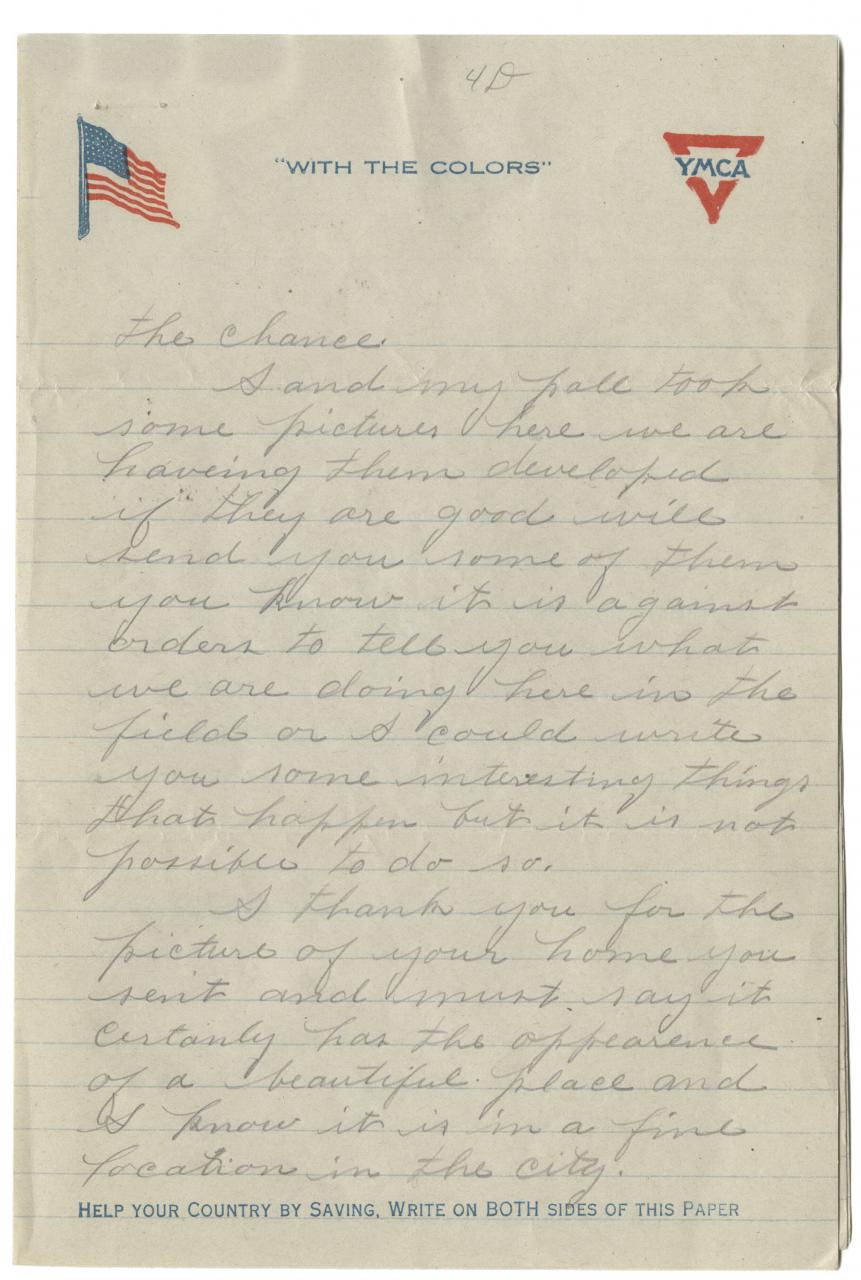 4D
"WITH THE COLORS"
YMCA
the chance.
I and my pall took
some pictures here we are
haveing them developed
if they are good will
send you some of them
you know it is against
orders to tell you what
we are doing here in the
field or I could write
you some interesting things
that happen but it is not
possible to do so.
I thank you for the
picture of your home you
sent and must say it
certanly has the appearence
of a beautiful place and
I know it is in a fine
location in the city.
HELP YOUR COUNTRY BY SAVING, WRITE ON BOTH SIDES OF THIS PAPER